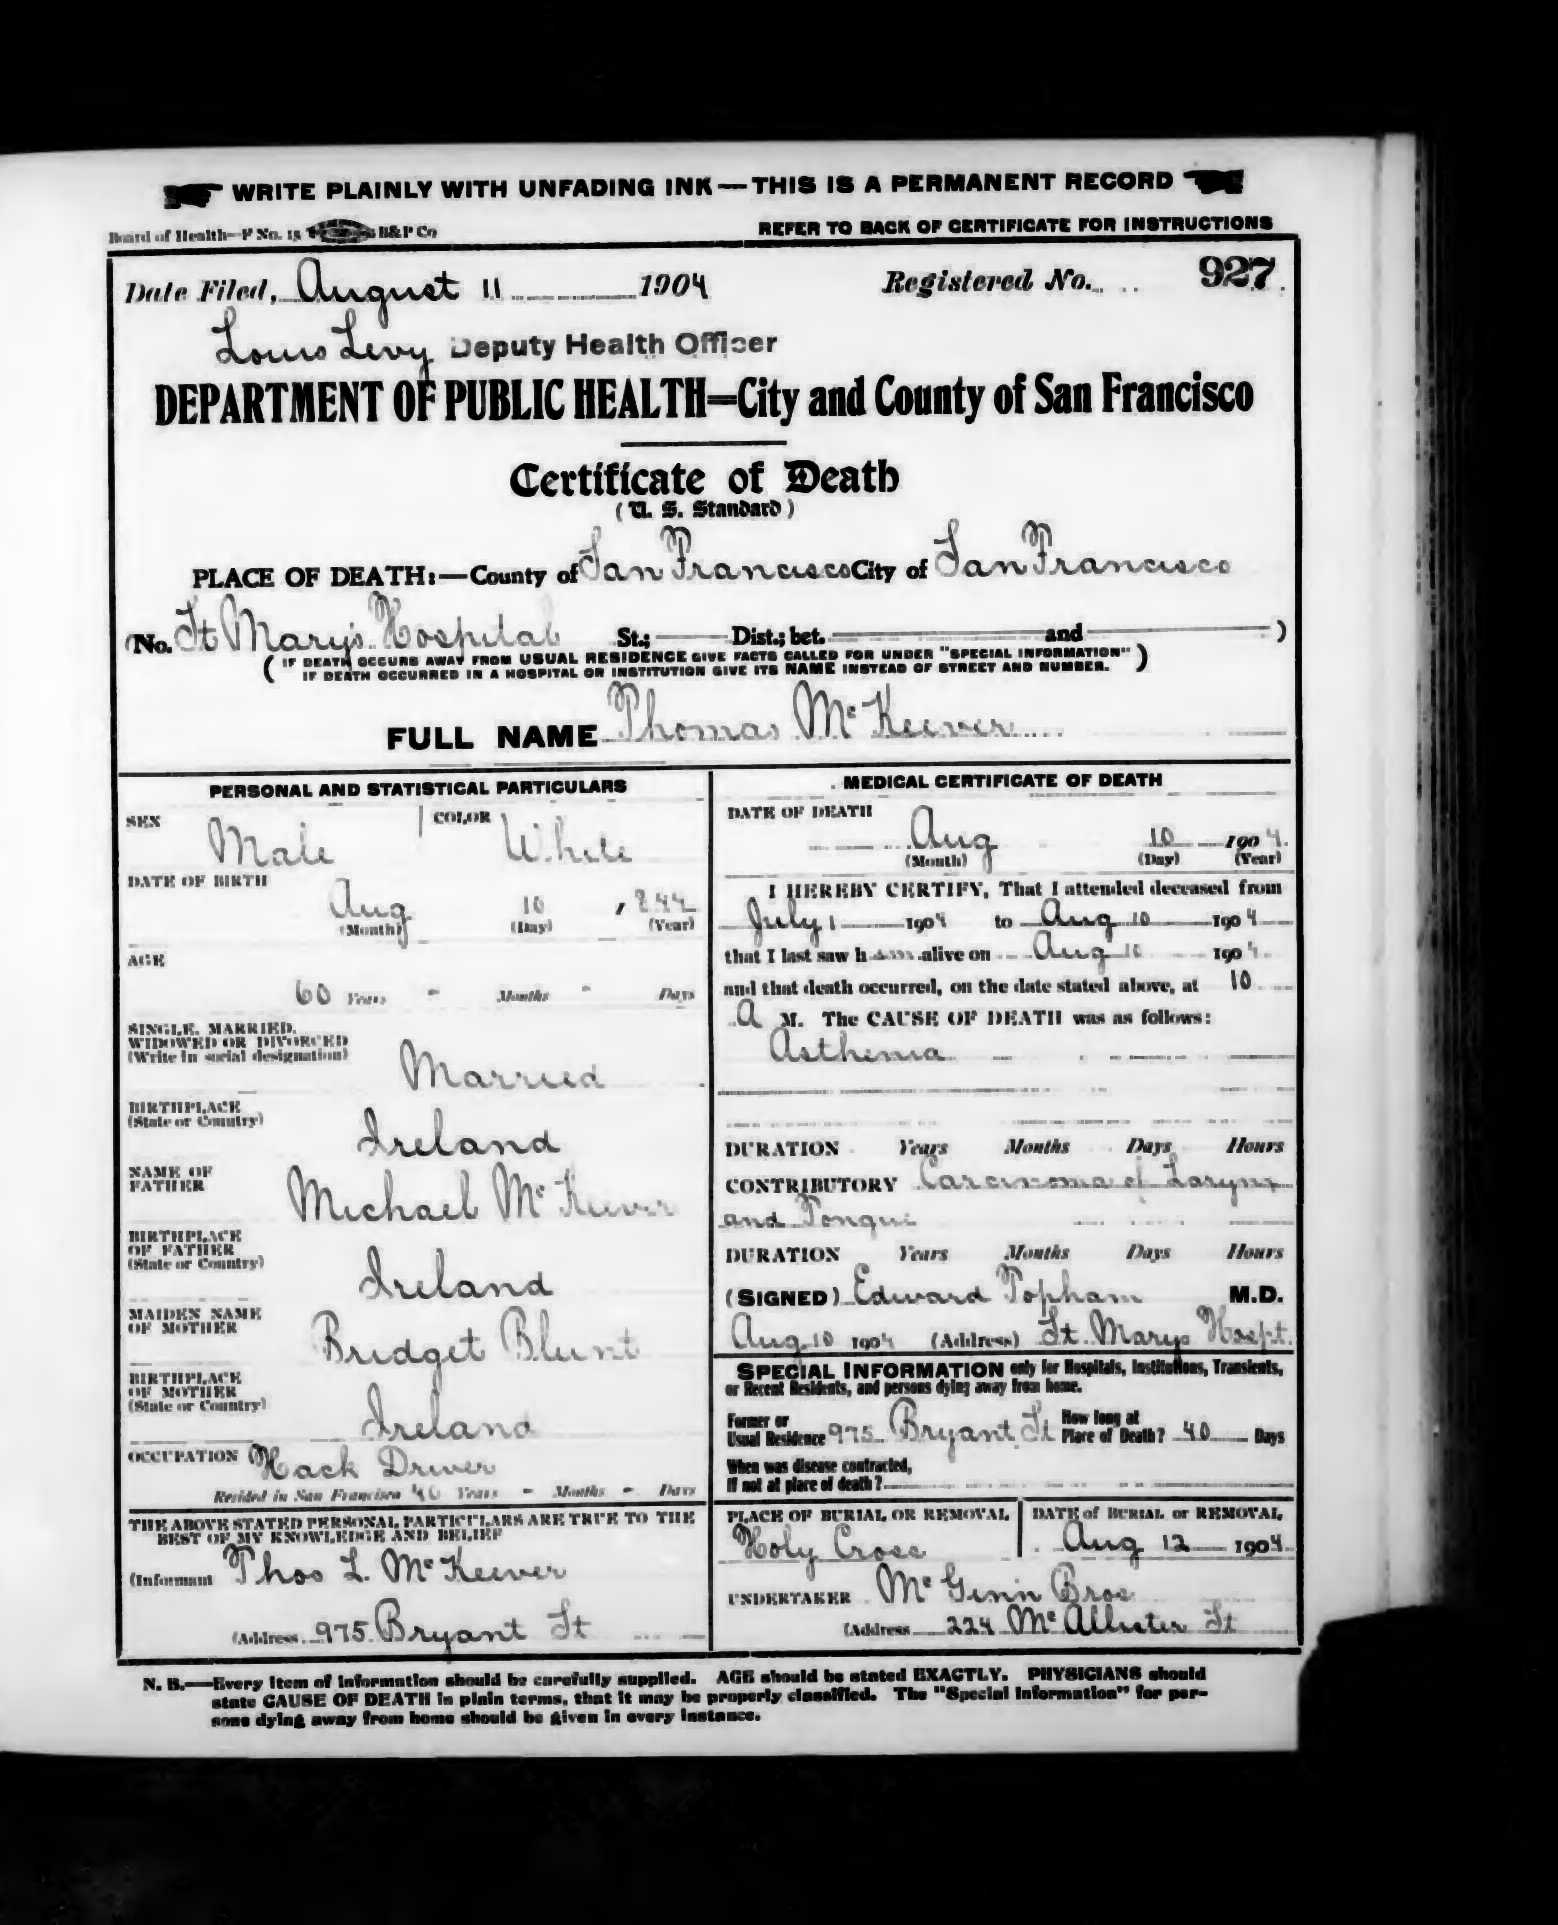 WRITE PLAINLY WITH UNFADING INK — THIS IS A PERMANENT RECORD
Board of Health—F No. 15 B&P Co
REFER TO BACK OF CERTIFICATE FOR INSTRUCTIONS
Date Filed, August 11 1904 Registered No. 927
Louis Levy Deputy Health Officer
DEPARTMENT OF PUBLIC HEALTH=City and County of San Francisco
Certificate of Death
(U. S. Standard)
PLACE OF DEATH:—County of San Francisco City of San Francisco
(No. St Mary's Hospital St.; Dist.; bet. and )
( IF DEATH OCCURS AWAY FROM USUAL RESIDENCE GIVE FACTS CALLED FOR UNDER "SPECIAL INFORMATION"
IF DEATH OCCURRED IN A HOSPITAL OR INSTITUTION GIVE ITS NAME INSTEAD OF STREET AND NUMBER. )
FULL NAME Thomas McKeever
PERSONAL AND STATISTICAL PARTICULARS
SEX Male COLOR White
DATE OF BIRTH
Aug 10 , 844
(Month) (Day) (Year)
AGE
60 Years - Months - Days
SINGLE, MARRIED,
WIDOWED OR DIVORCED
(Write in social designation) Married
BIRTHPLACE
(State or Country) Ireland
NAME OF
FATHER Michael McKeever
BIRTHPLACE
OF FATHER
(State or Country) Ireland
MAIDEN NAME
OF MOTHER Bridget Blunt
BIRTHPLACE
OF MOTHER
(State or Country) Ireland
OCCUPATION Hack Driver
Resided in San Francisco 40 Years - Months - Days
THE ABOVE STATED PERSONAL PARTICULARS ARE TRUE TO THE
BEST OF MY KNOWLEDGE AND BELIEF
(Informant Thos L. McKeever
(Address 975 Bryant St
MEDICAL CERTIFICATE OF DEATH
DATE OF DEATH
Aug 10 1904
(Month) (Day) (Year)
I HEREBY CERTIFY, That I attended deceased from
July 1 1904 to Aug 10 1904
that I last saw h im alive on Aug 10 1904
and that death occurred, on the date stated above, at 10
A M. The CAUSE OF DEATH was as follows:
Asthenia
DURATION Years Months Days Hours
CONTRIBUTORY Carcinoma of Larynx
and Tongue
DURATION Years Months Days Hours
(SIGNED) Edward Topham M.D.
Aug 10 1904 (Address) St. Marys Hospt.
SPECIAL INFORMATION only for Hospitals, Institutions, Transients,
or Recent Residents, and persons dying away from home.
Former or
Usual Residence 975 Bryant St How long at
Place of Death? 40 Days
When was disease contracted,
If not at place of death?
PLACE OF BURIAL OR REMOVAL Holy Cross
DATE of BURIAL or REMOVAL Aug 12 1904
UNDERTAKER McGinn Bros
(Address 224 McAllister St
N. B.—Every item of information should be carefully supplied. AGE should be stated EXACTLY. PHYSICIANS should
state CAUSE OF DEATH in plain terms, that it may be properly classified. The "Special Information" for per-
sons dying away from home should be given in every instance.